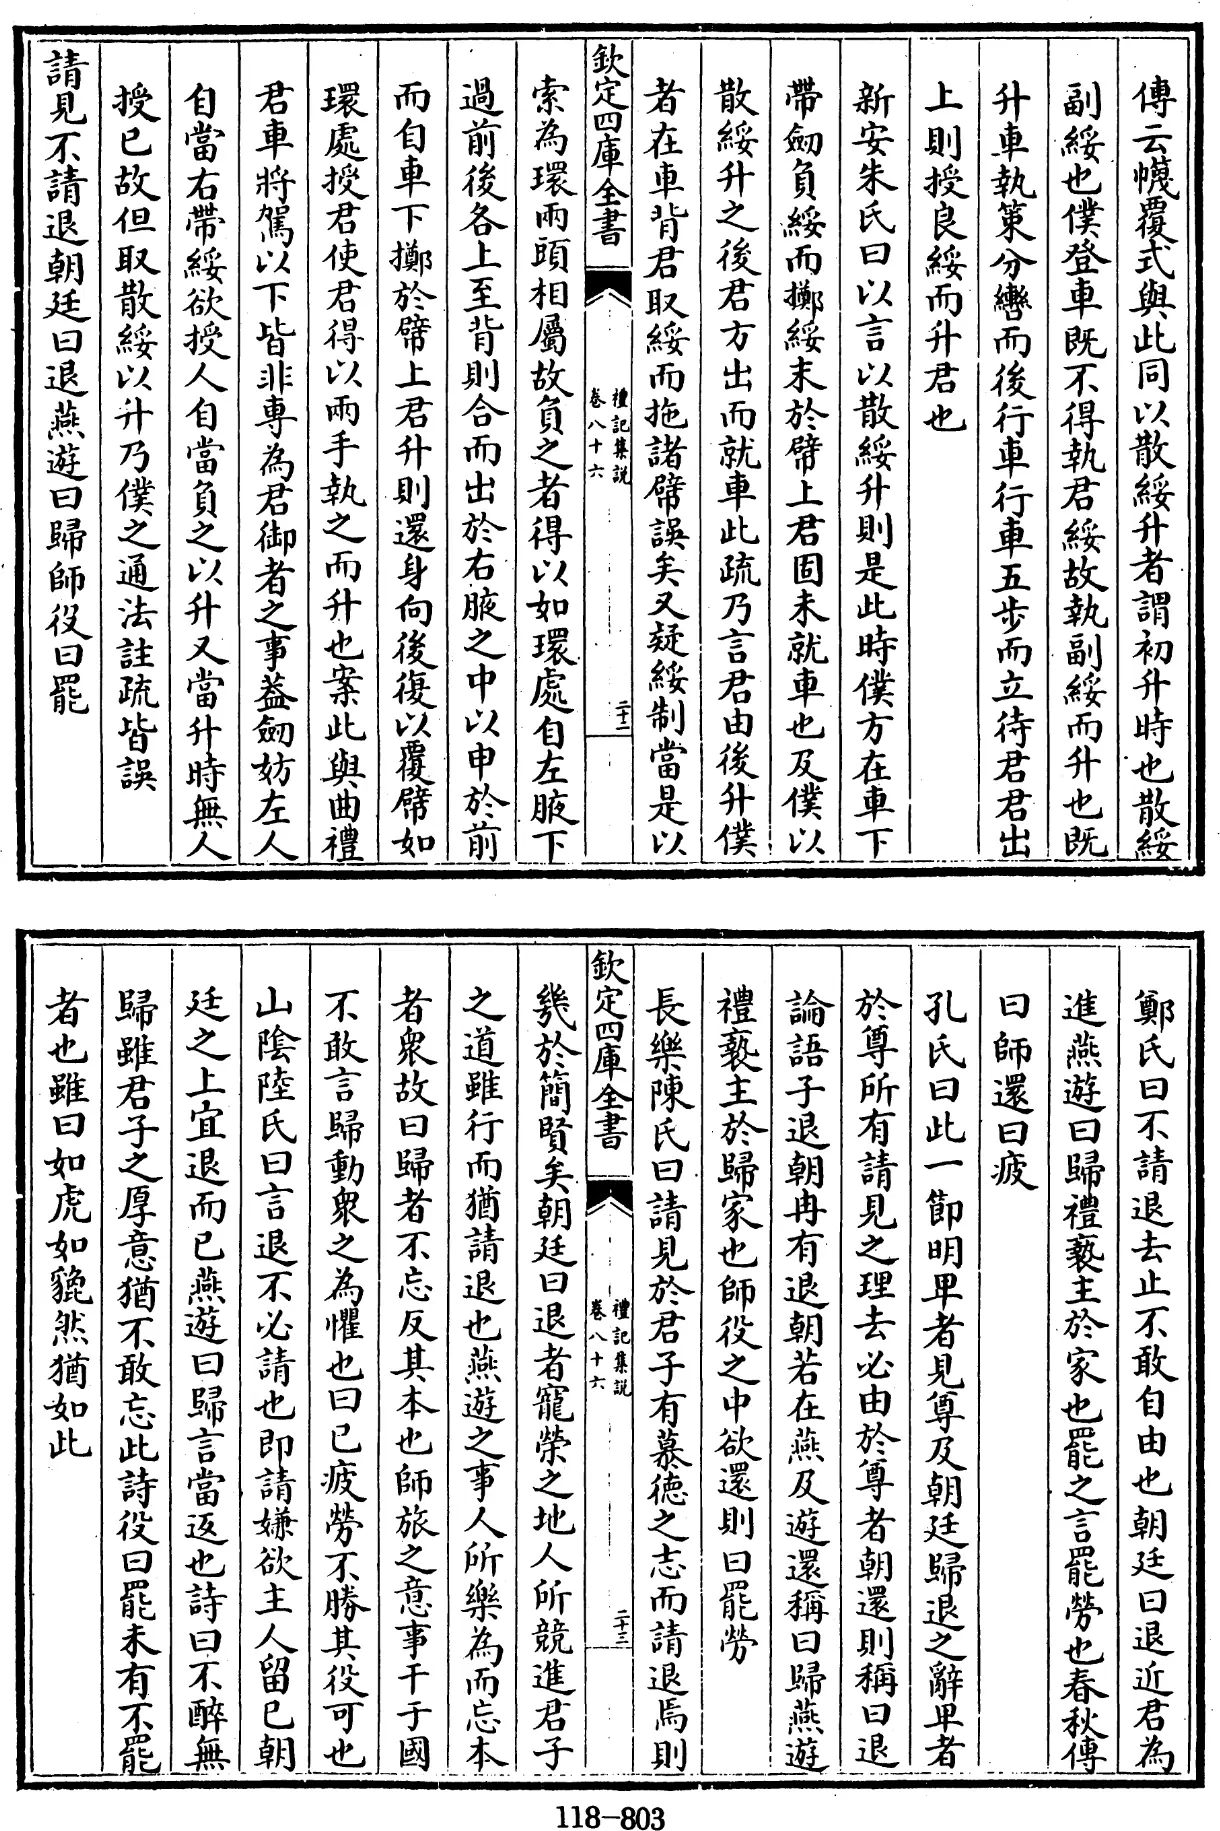 傳云幭覆式與此同以散綏升者謂初升時也散綏
副綏也僕登車既不得執君綏故執副綏而升也既
升車執策分轡而後行車行車五步而立待君君出
上則授良綏而升君也
新安朱氏曰以言以散綏升則是此時僕方在車下
帶劒負綏而擲綏末於幦上君固未就車也及僕以
散綏升之後君方出而就車此疏乃言君由後升僕
者在車背君取綏而拖諸幦誤矣又疑綏制當是以
欽定四庫全書
禮記集說
卷八十六
二十二
索為環兩頭相屬故負之者得以如環處自左腋下
過前後各上至背則合而出於右腋之中以申於前
而自車下擲於幦上君升則還身向後復以覆幦如
環處授君使君得以兩手執之而升也案此與曲禮
君車將駕以下皆非專為君御者之事葢劒妨左人
自當右帶綏欲授人自當負之以升又當升時無人
授已故但取散綏以升乃僕之通法註疏皆誤
請見不請退朝廷曰退燕遊曰歸師役曰罷
鄭氏曰不請退去止不敢自由也朝廷曰退近君為
進燕遊曰歸禮褻主於家也罷之言罷勞也春秋傳
曰師還曰疲
孔氏曰此一節明卑者見尊及朝廷歸退之辭卑者
於尊所有請見之理去必由於尊者朝還則稱曰退
論語子退朝冉有退朝若在燕及遊還稱曰歸燕遊
禮褻主於歸家也師役之中欲還則曰罷勞
長樂陳氏曰請見於君子有慕德之志而請退焉則
欽定四庫全書
禮記集說
卷八十六
二十三
幾於簡賢矣朝廷曰退者寵榮之地人所競進君子
之道雖行而猶請退也燕遊之事人所樂為而忘本
者衆故曰歸者不忘反其本也師旅之意事干于國
不敢言歸動衆之為懼也曰已疲勞不勝其役可也
山陰陸氏曰言退不必請也即請嫌欲主人留已朝
廷之上宜退而已燕遊曰歸言當返也詩曰不醉無
歸雖君子之厚意猶不敢忘此詩役曰罷未有不罷
者也雖曰如虎如貔然猶如此
118-803